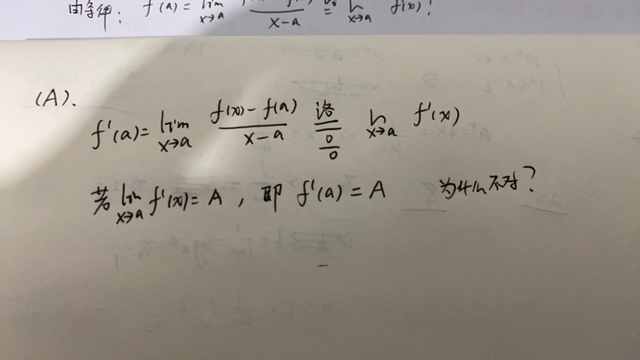 由条件: f'(a) = lim x→a x-a = lim x→a f'(x)!
(A).
f'(a) = lim x→a f(x) - f(a) / x-a 洛 0/0 = lim x→a f'(x)
若 lim x→a f'(x) = A , 即 f'(a) = A 为什么不对?